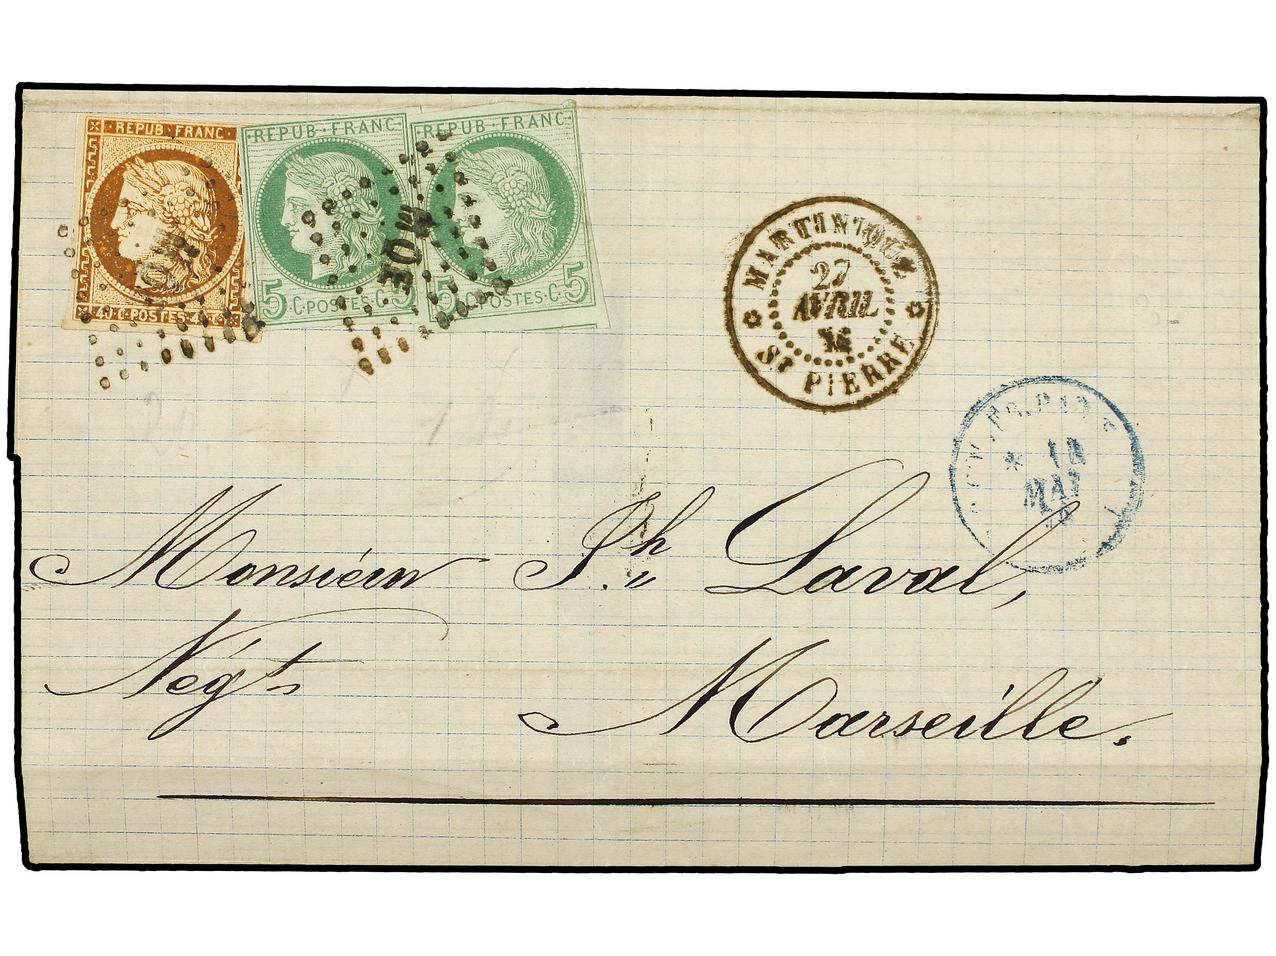 REPUB · FRANC
REPUB · FRANC
REPUB · FRANC
40 · C · POSTES · 40 · C
5 C · POSTES · C 5
5 C · POSTES · C · 5
MARTINIQUE
27
AVRIL
ST PIERRE
18
MAI
Monsieur Ph Laval,
Négt
Marseille.